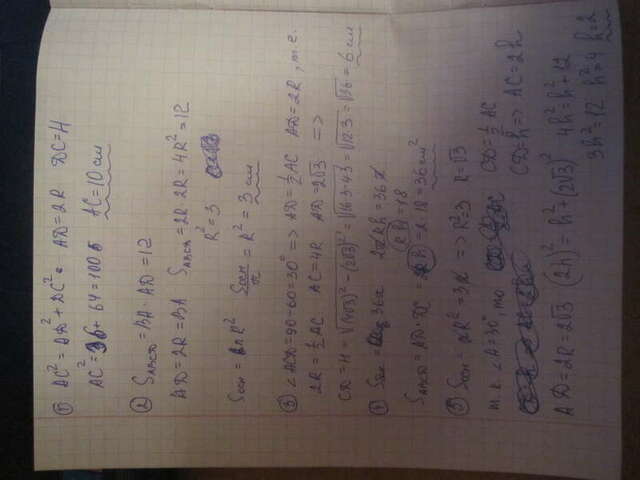 ① AC² = AD² + DC² AD = 2R DC = H
AC² = 36 + 64 = 100 AC = 10 см
② S_ABCD = BA · AD = 12
AD = 2R = BA S_ABCD = 2R · 2R = 4R² = 12
R² = 3
Sосн = πR² Sосн/π = R² = 3 см
③ ∠ACD = 90 - 60 = 30° => AD = ½ AC AD = 2R, т.е.
2R = ½ AC AC = 4R AD = 2√3 =>
CD = H = √((4√3)² - (2√3)²) = √(16·3 - 4·3) = √(12·3) = √36 = 6 см
④ 36π 2πRh = 36π
Rh = 18
S_ABCD = AD · DC = 2 · 18 = 36 см²
⑤ Sосн = πR² = 3π => R² = 3 R = √3
т.к. ∠A = 30°, то CD = ½ AC
CD = h => AC = 2h
AD = 2R = 2√3 (2h)² = h² + (2√3)² 4h² = h² + 12
3h² = 12 h² = 4 h = 2